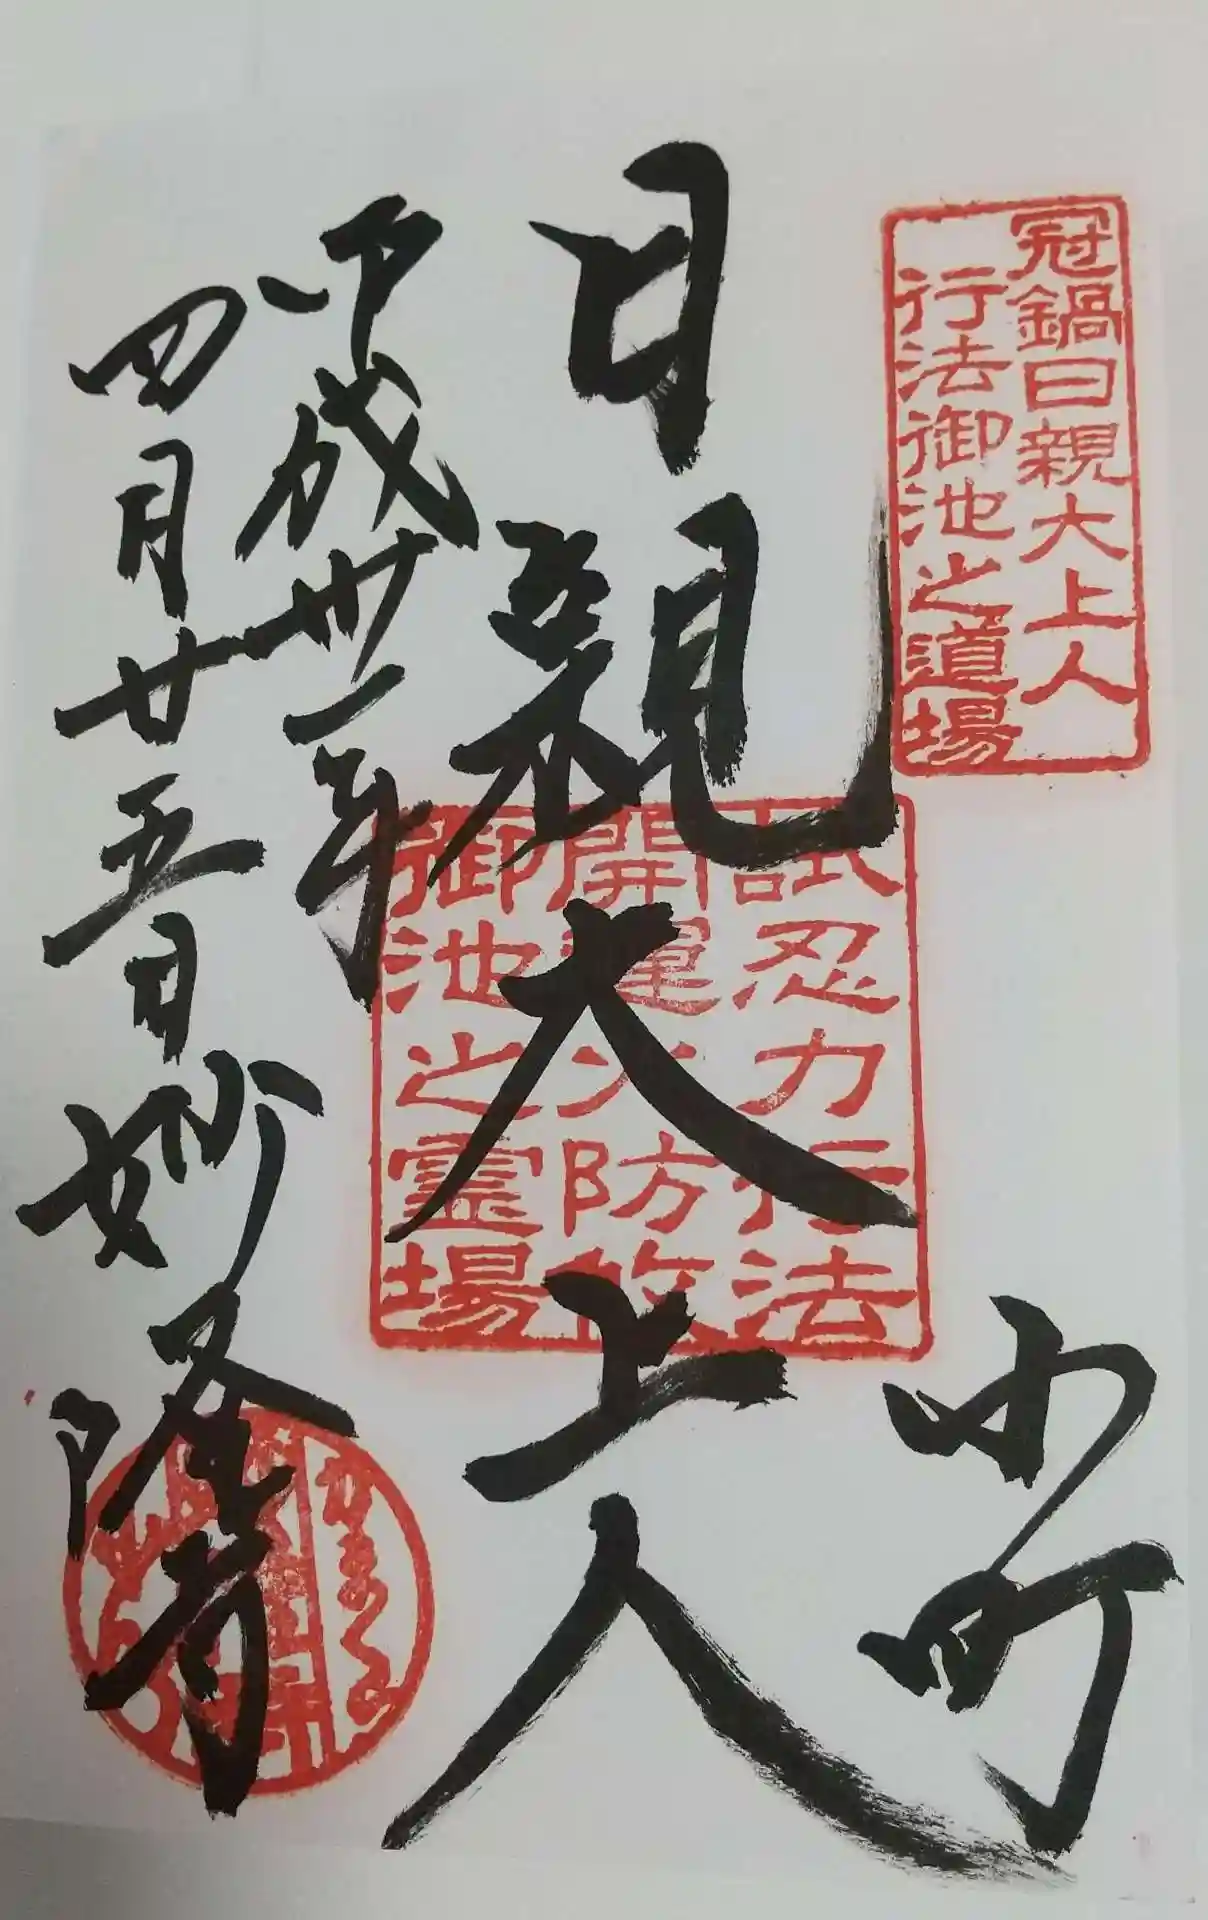 冠鍋日親大上人
行法御池之道場
小町
日親大上人
試忍力行法
開運火防
御池之霊場
平成卅一年
四月廿五日 妙隆寺